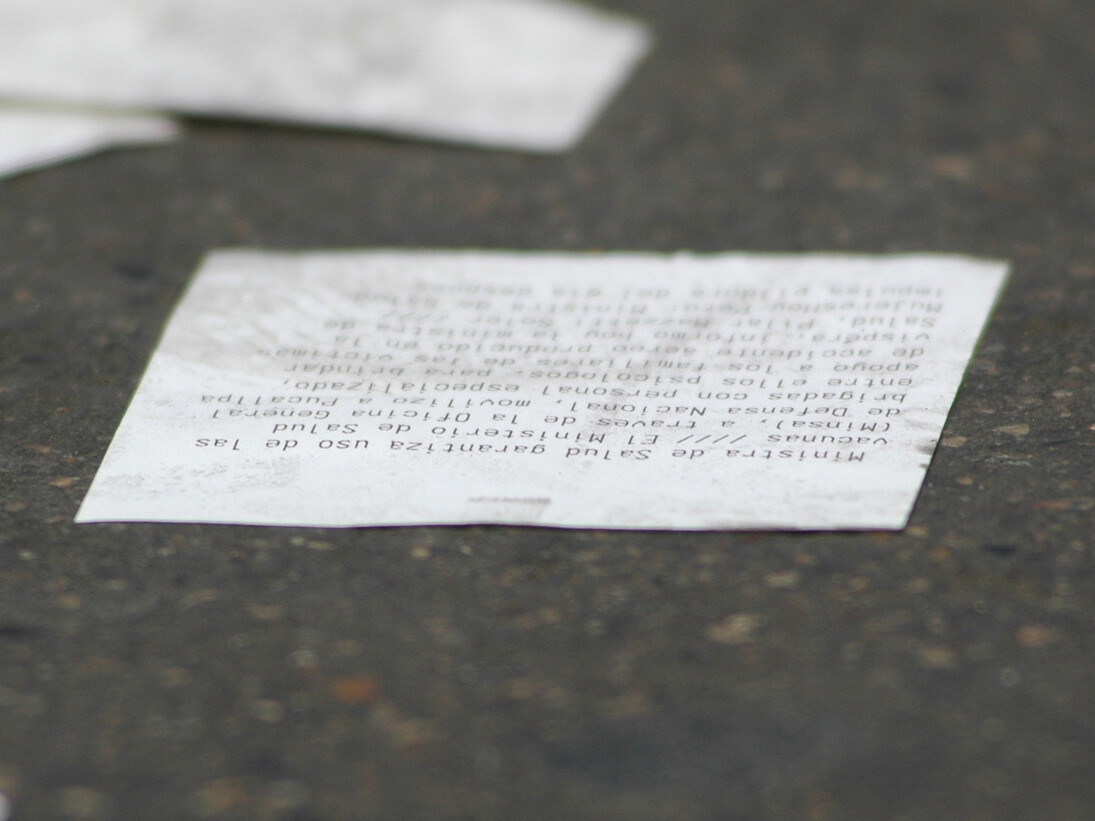 Ministra de Salud garantiza uso de las
vacunas //// El Ministerio de Salud
(Minsa), a traves de la Oficina General
de Defensa Nacional, movilizo a Pucallpa
brigadas con personal especializado,
entre ellos psicologos, para brindar
apoyo a los familiares de las victimas
de accidente aereo producido en la
vispera, informo hoy la ministra de
Salud, Pilar Mazzetti Soler ////
MujeresHoy Peru: Ministra de Salud
impulsa pildora del dia despues